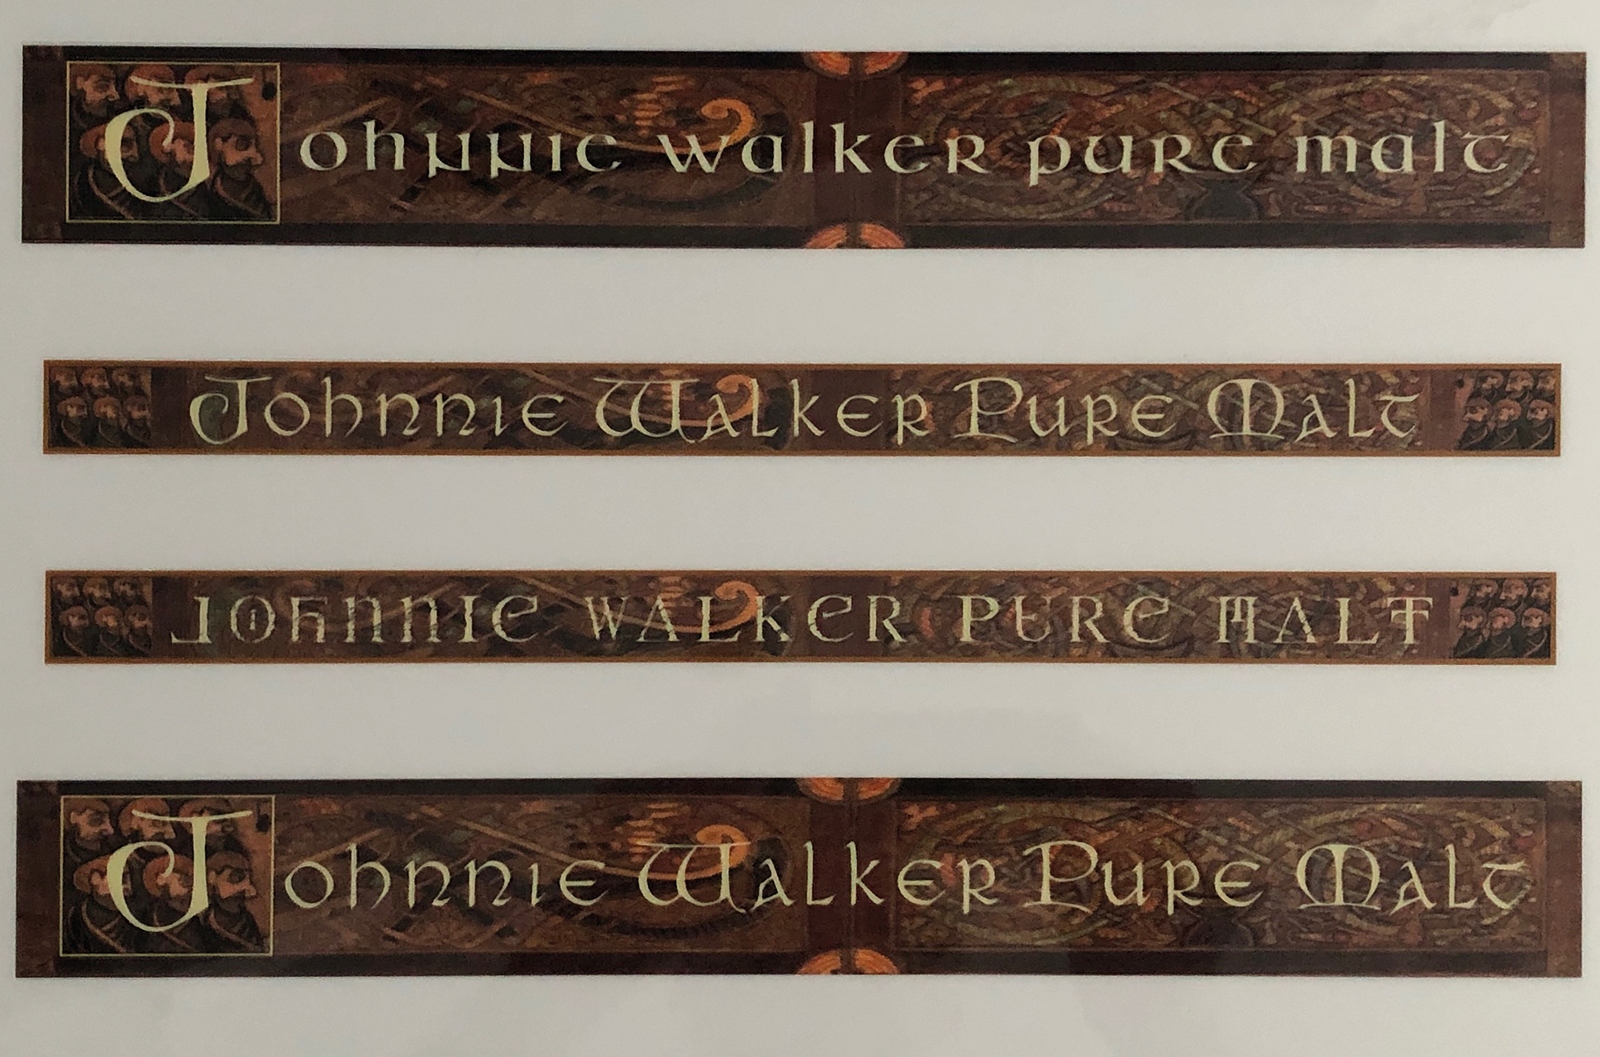 Johnnie walker pure malt
Johnnie Walker Pure Malt
JOHNNIE WALKER PURE MALT
Johnnie Walker Pure Malt